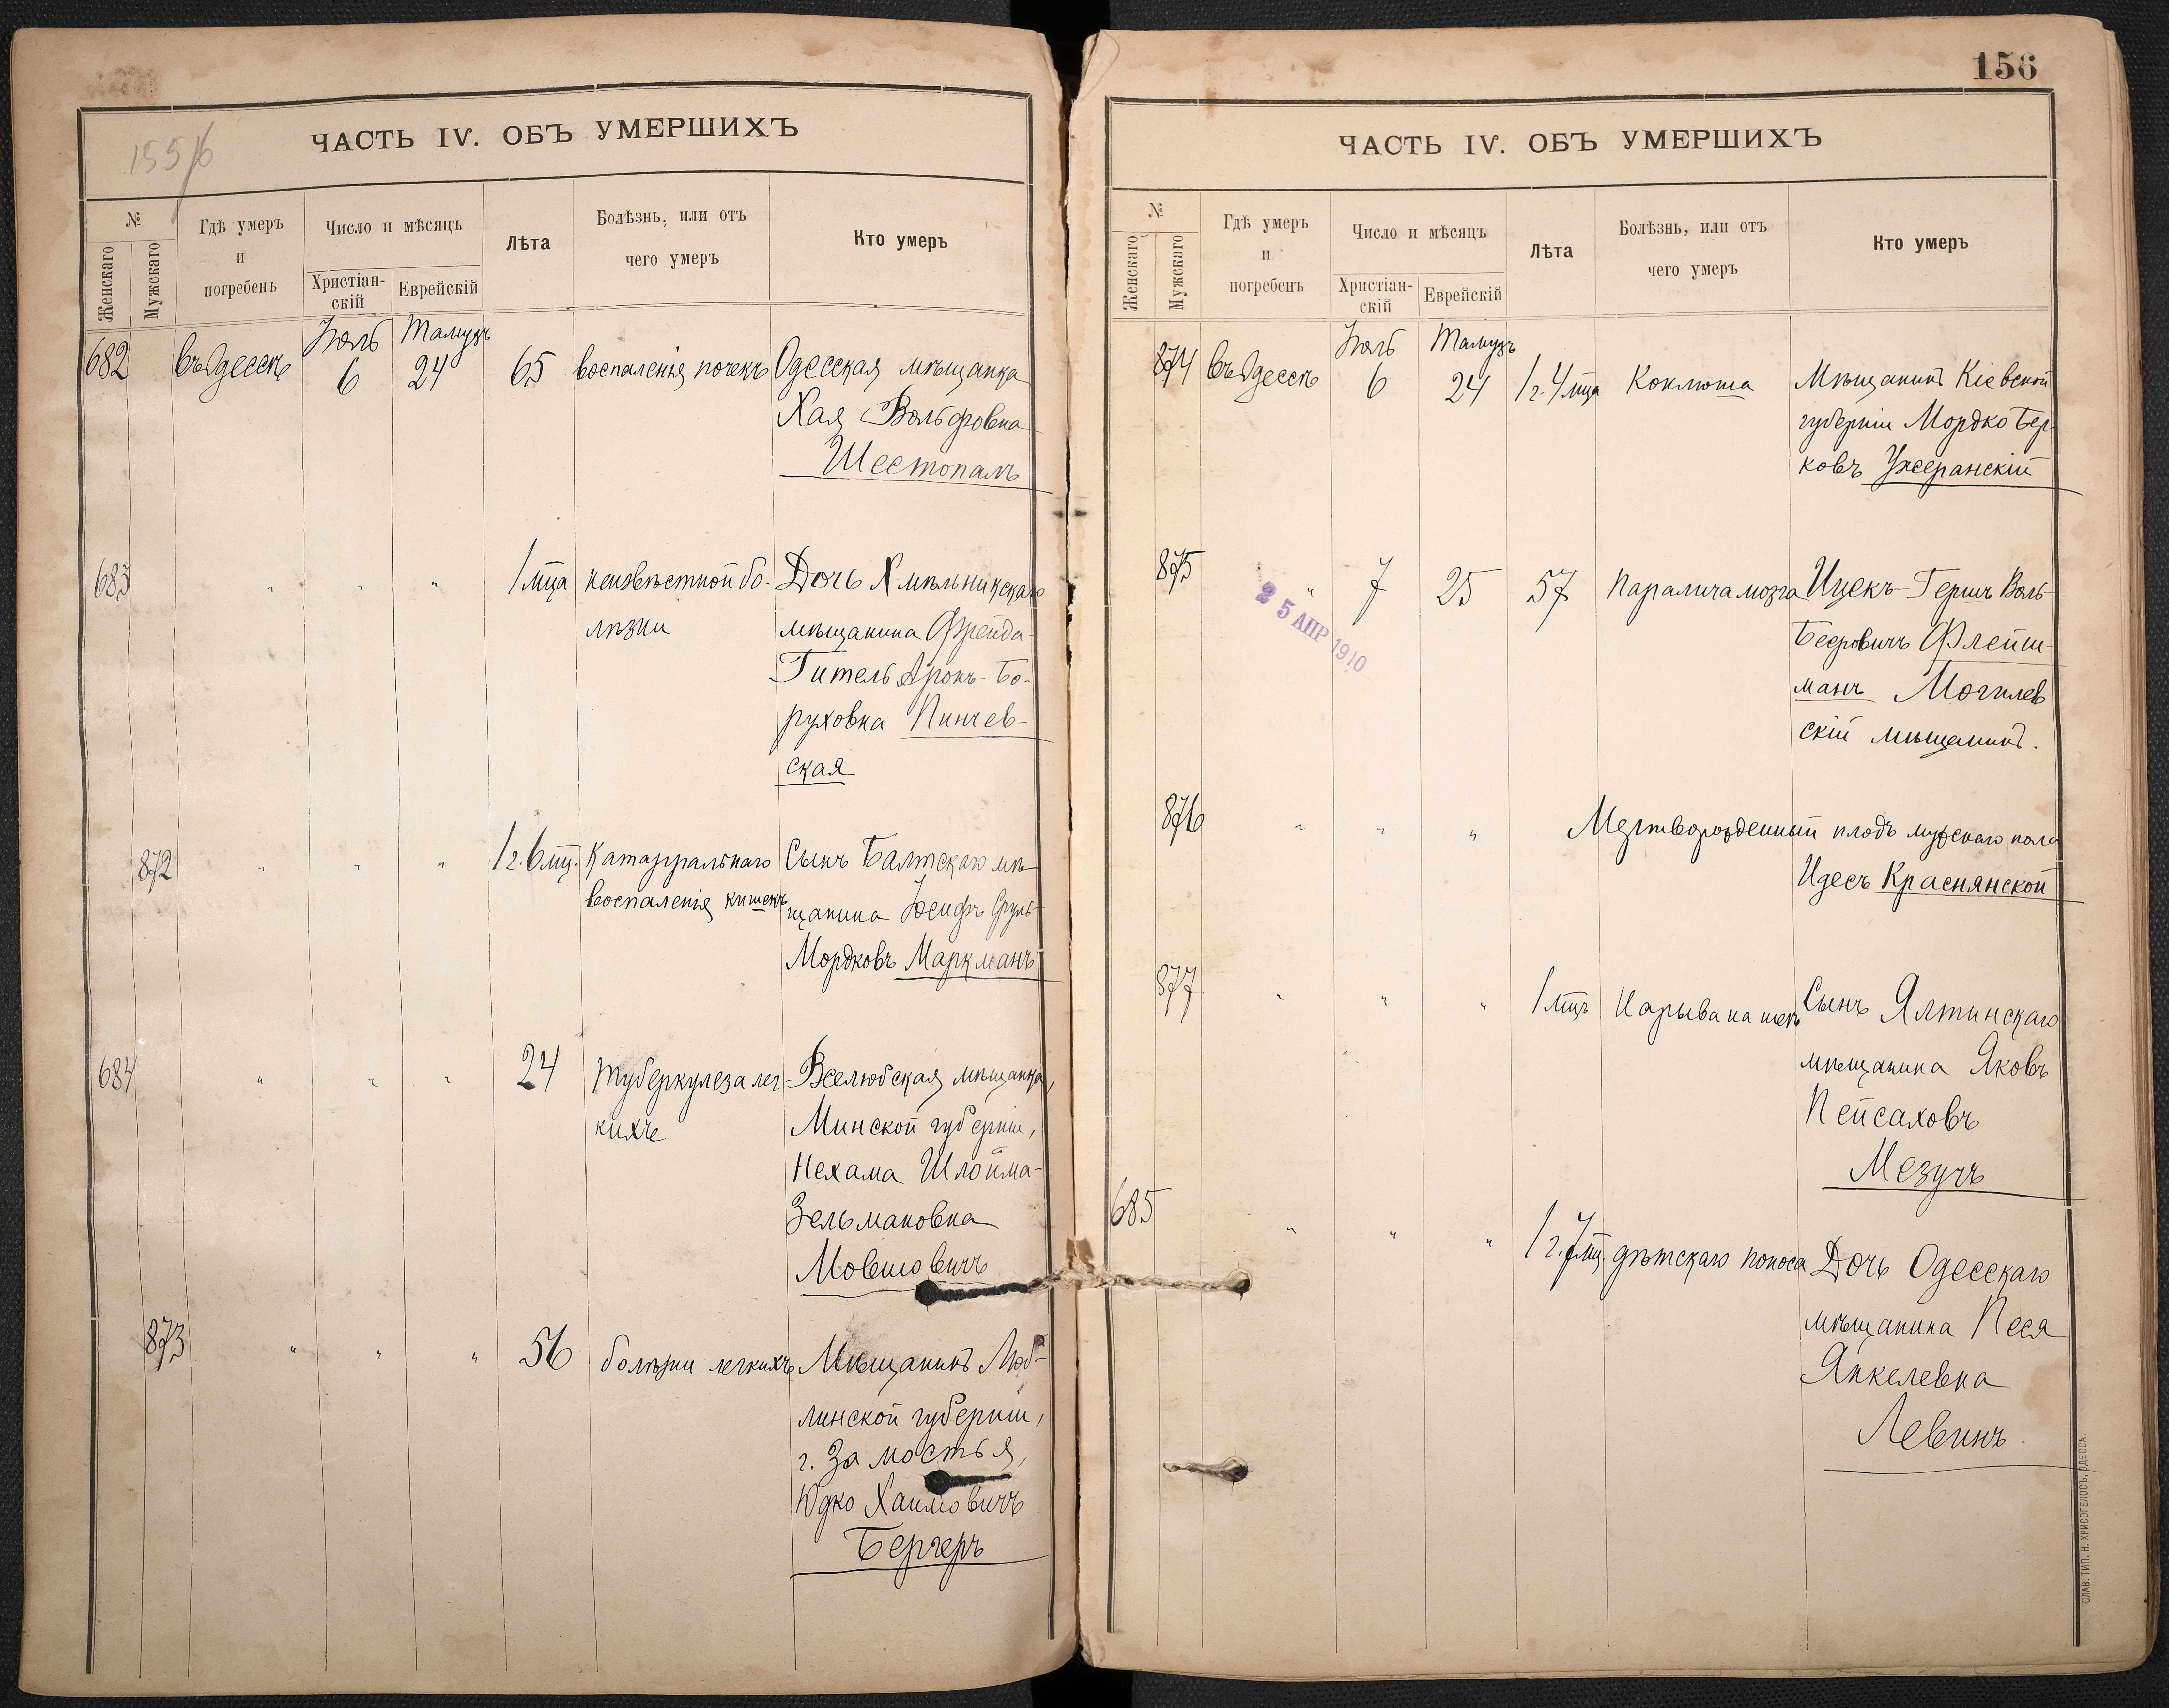 155/6
ЧАСТЬ IV. ОБЪ УМЕРШИХЪ
№
Женскаго
Мужскаго
Гдѣ умеръ
и
погребенъ
Число и мѣсяцъ
Христіан-
скій
Еврейскій
Лѣта
Болѣзнь, или отъ
чего умеръ
Кто умеръ
Іюль Тамузъ
682 въ Одессѣ 6 24 65 воспаленія почекъ Одесская мѣщанка
Хая Вольфовна
Шестопалъ
683 " " " 1 мца неизвѣстной бо- Дочь Хмѣльникскаго
лѣзни мѣщанина Фрейда-
Гитель Аронъ-Бо-
руховна Пинчев-
ская
872 " " " 1 г. 6 мц. Катарральнаго Сынъ Балтскаго мѣ-
воспаленія кишекъ щанина Іосифъ Сруль-
Мордковъ Маркманъ
684 " " " 24 туберкулеза лег- Вселюбская мѣщанка,
кихъ Минской губерніи,
Нехама Шлойма-
Зельмановна
Мовшовичъ
873 " " " 56 болѣзни легкихъ Мѣщанинъ Люб-
линской губерніи,
г. Замостья,
Юдко Хаимовичъ
Бергеръ
156
ЧАСТЬ IV. ОБЪ УМЕРШИХЪ
№
Женскаго
Мужскаго
Гдѣ умеръ
и
погребенъ
Число и мѣсяцъ
Христіан-
скій
Еврейскій
Лѣта
Болѣзнь, или отъ
чего умеръ
Кто умеръ
Іюль Тамузъ
874 въ Одессѣ 6 24 1 г. 4 мца Коклюша Мѣщанинъ Кіевской
губерніи Мордко Бер-
ковъ
875 " 7 25 57 Паралича мозга Ицекъ-Гершъ Воль-
Бееровичъ Флейш-
манъ Могилев
скій мѣщанинъ.
25 АПР 1910
876 " " " Мертворожденный плодъ мужскаго пола
Идесъ Краснянской
877 " " " 1 мцъ Нарыва на шеѣ Сынъ Ялтинскаго
мѣщанина Яковъ
Пейсаховъ
Мезучъ
685 " " " 1 г. 7 мц. дѣтскаго поноса Дочь Одесскаго
мѣщанина Песя
Янкелевна
Левинъ.
СЛАВ. ТИП. Н. ХРИСОГЕЛОСЪ, ОДЕССА.